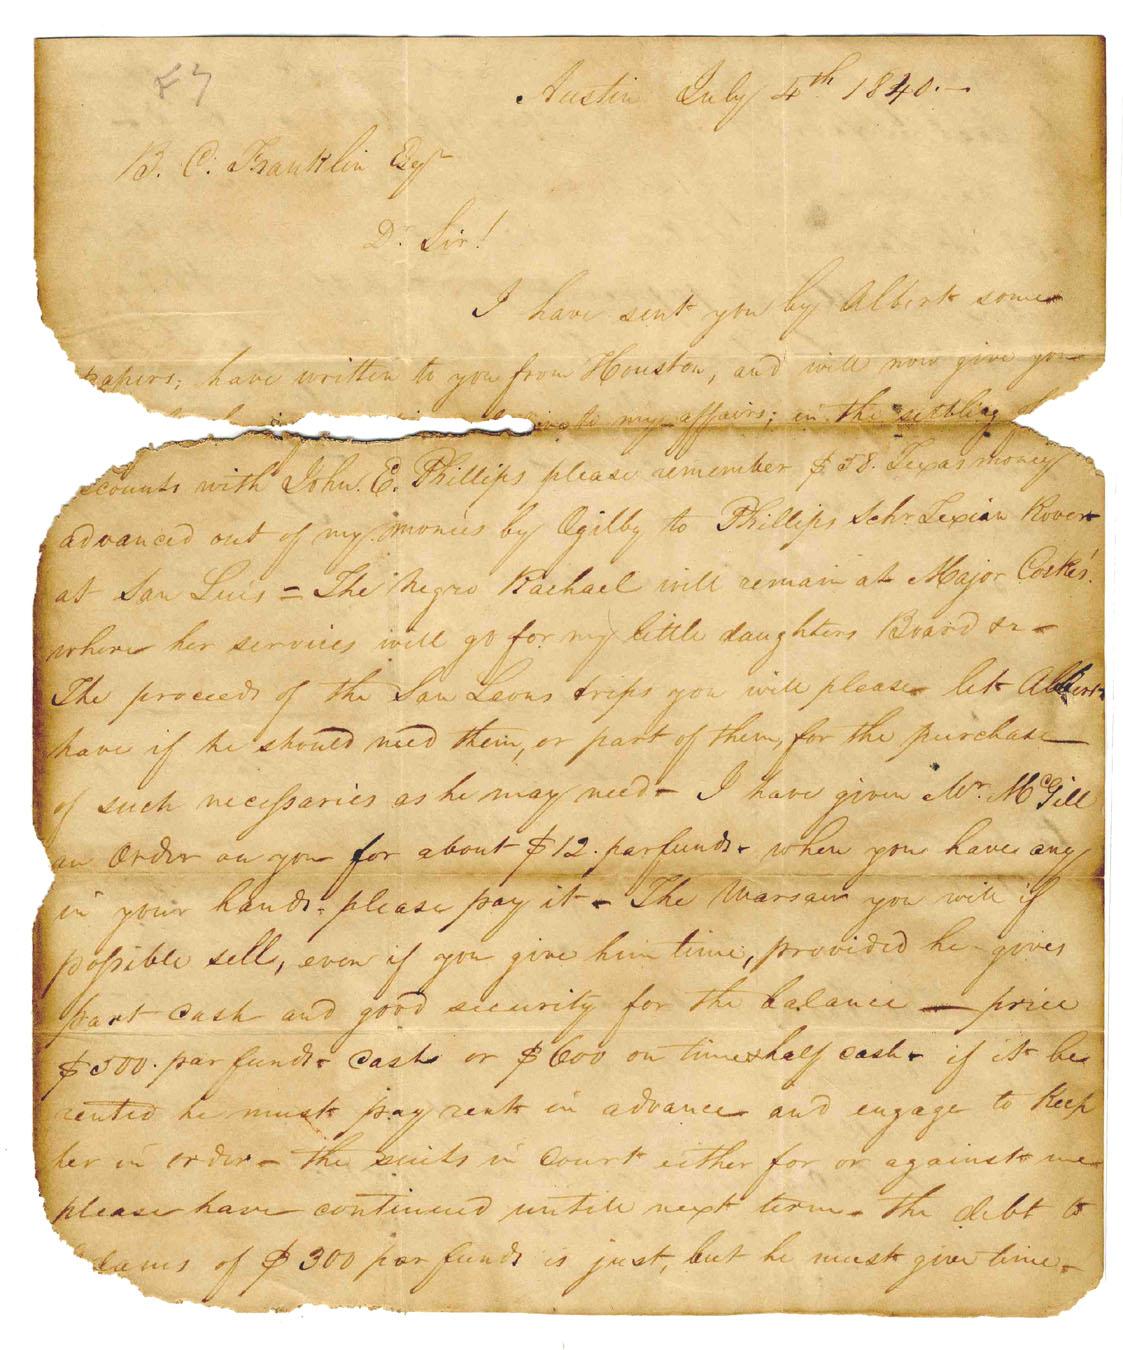 F7
Austin July 4th 1840.—
B. C. Franklin Esqr
Dr Sir!
I have sent you by Albert some
papers; have written to you from Houston, and will now give you
to my affairs; in the settling of
accounts with John. E. Phillips please remember $58. Texas money
advanced out of my monies by Ogilby to Phillips Schr Texian Rover
at San Luis = The Negro Rachael will remain at Major Cockes!
where her services will go for my little daughters Board &c —
The proceeds of the San Leons trips you will please let Albert
have if he should need them, or part of them, for the purchase
of such necessaries as he may need – I have given Mr. McGill
an Order on you for about $12. par funds – when you have any
in your hands, please pay it – The Warsaw you will if
possible sell, even if you give him time, provided he gives
part cash and good security for the balance — price
$500. par funds – cash or $600 on time half cash – if it be
rented he must pay rent in advance and engage to keep
her in order – the suits in court either for or against me
please have continued untill next term – the debt to
of $300 par funds is just, but he must give time –